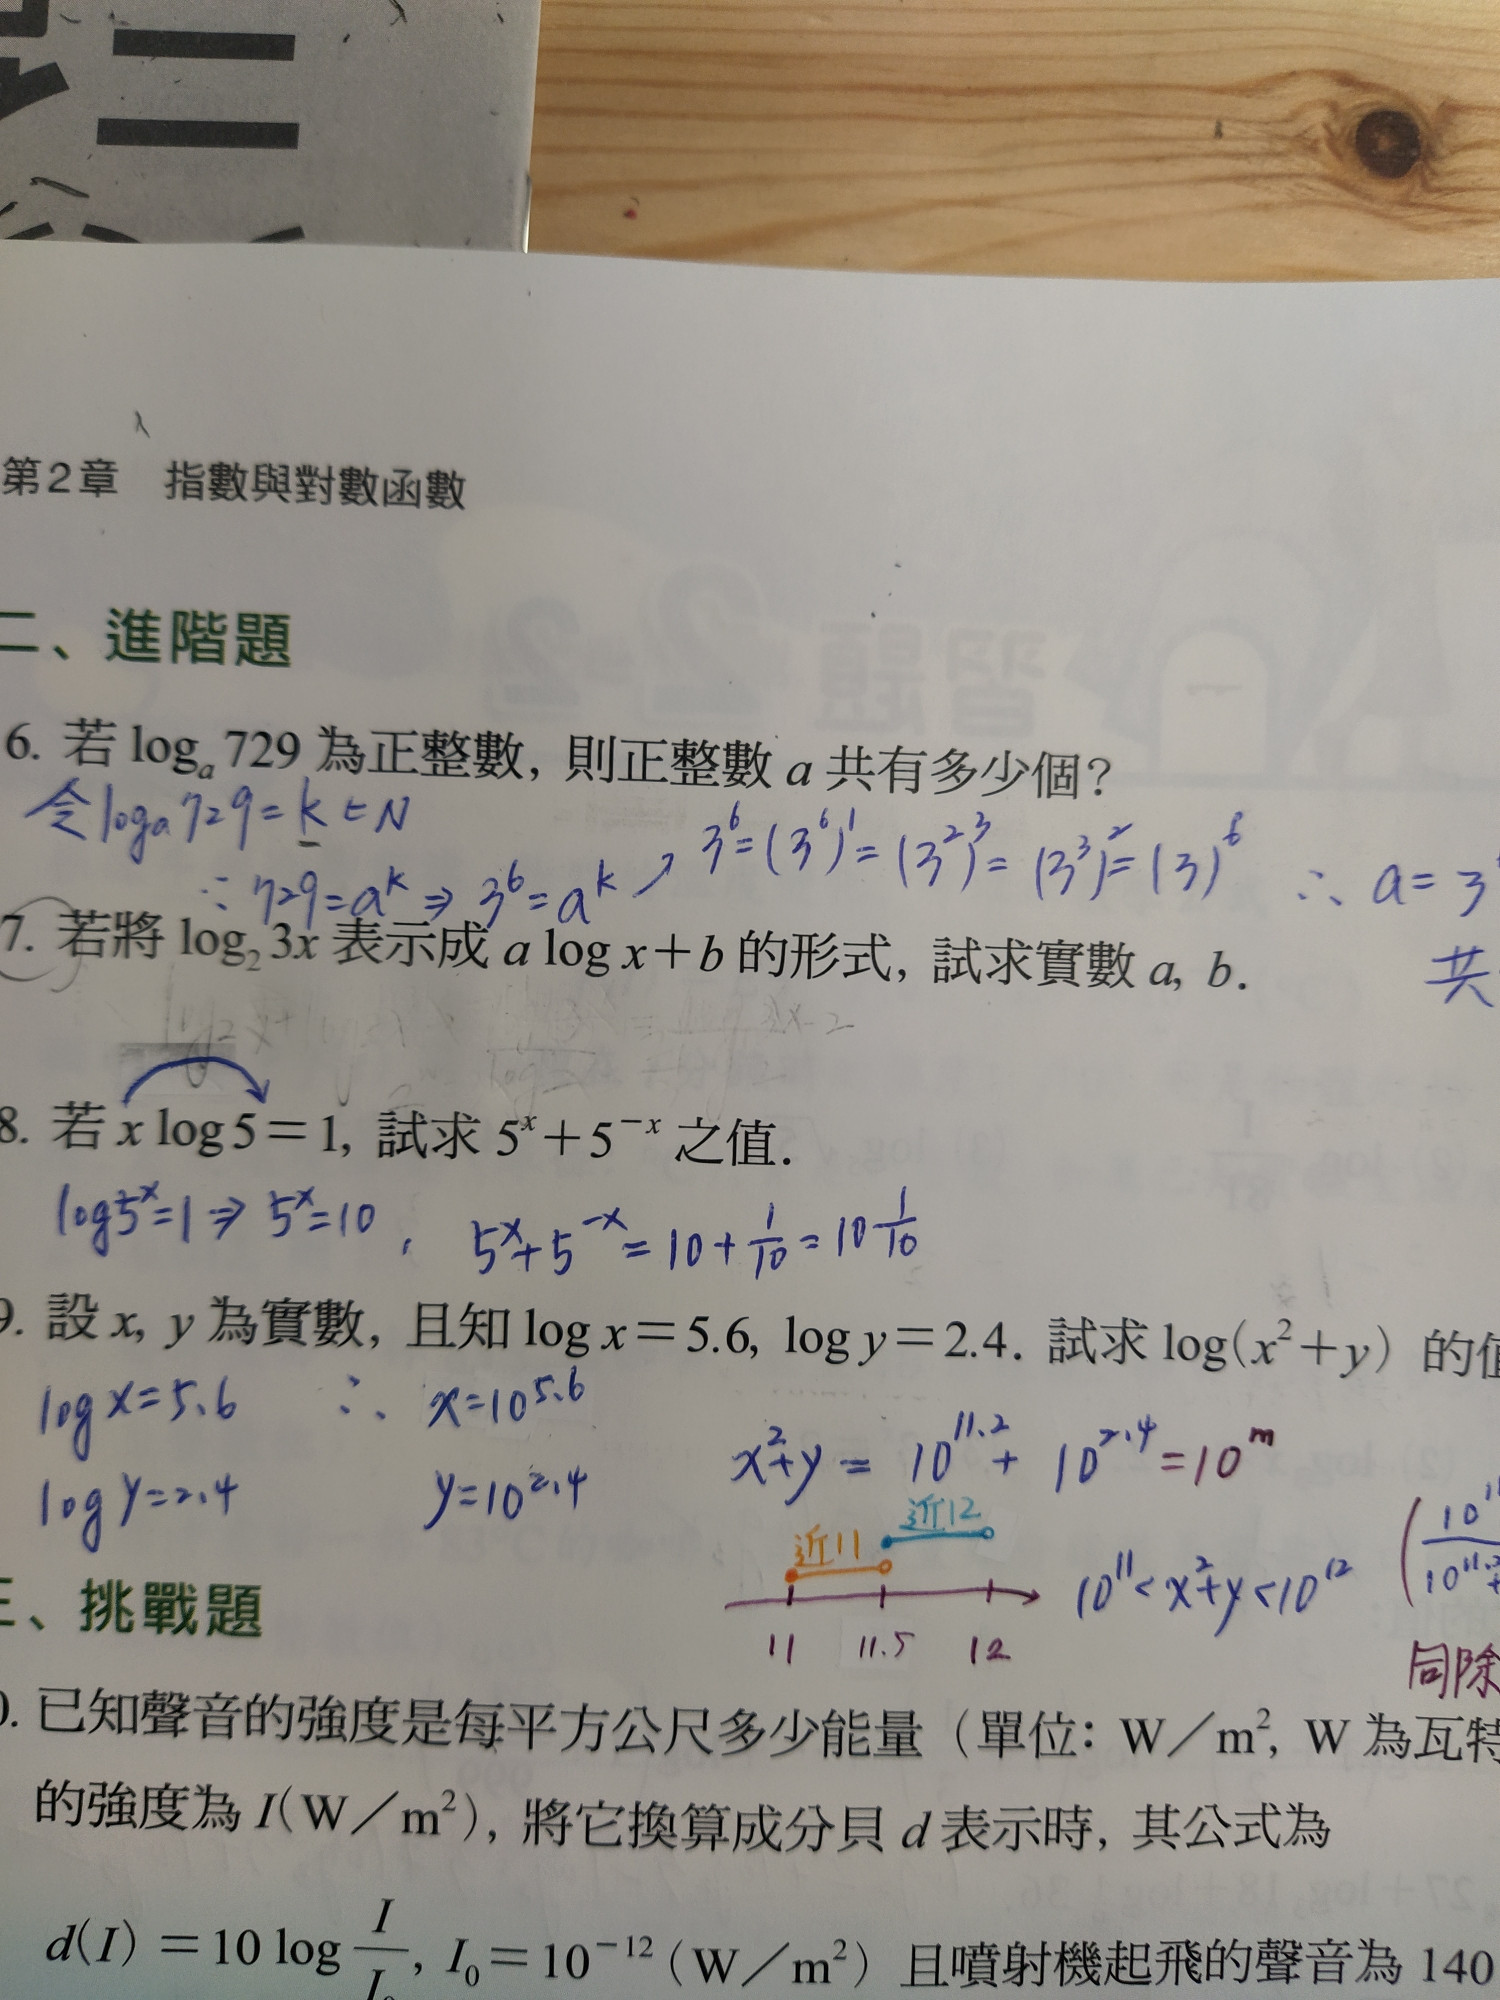 第2章 指數與對數函數
二、進階題
6. 若 logₐ 729 為正整數, 則正整數 a 共有多少個?
令 logₐ 729 = k ∈ N
∴ 729 = aᵏ ⇒ 3⁶ = aᵏ ↗ 3⁶ = (3⁶)¹ = (3²)³ = (3³)² = (3)⁶ ∴ a = 3
共
7. 若將 log₂ 3x 表示成 a log x + b 的形式, 試求實數 a, b.
8. 若 x log 5 = 1, 試求 5ˣ + 5⁻ˣ 之值.
log5ˣ = 1 ⇒ 5ˣ = 10, 5ˣ + 5⁻ˣ = 10 + 1/10 = 10 1/10
9. 設 x, y 為實數, 且知 log x = 5.6, log y = 2.4. 試求 log(x² + y) 的值
log x = 5.6 ∴ x = 10^5.6
log y = 2.4 y = 10^2.4
x² + y = 10^11.2 + 10^2.4 = 10^m
近11 近12
11 11.5 12
10¹¹ < x² + y < 10¹²
同除
三、挑戰題
0. 已知聲音的強度是每平方公尺多少能量 (單位: W/m², W 為瓦特
的強度為 I(W/m²), 將它換算成分貝 d 表示時, 其公式為
d(I) = 10 log I/I₀, I₀ = 10⁻¹² (W/m²) 且噴射機起飛的聲音為 140